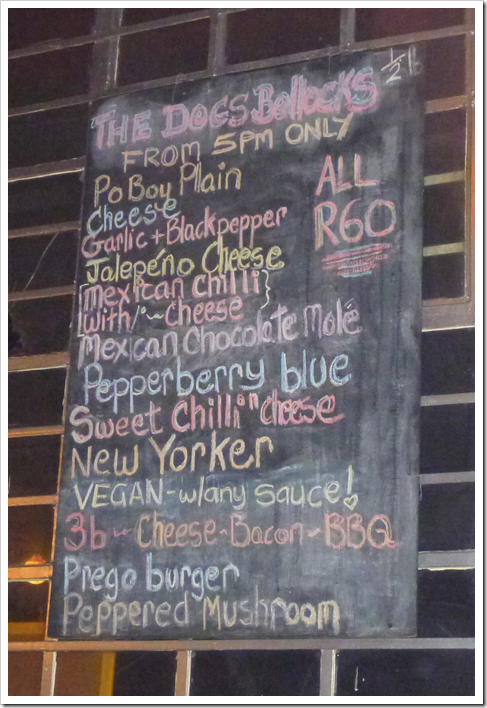 THE DOGS BOllOCKS 1/2
FROM 5PM ONLY
Po Boy Plain
Cheese
Garlic + Blackpepper
Jalepéno Cheese
Mexican chilli
with/~ Cheese
Mexican Chocolate Molé
Pepperberry blue
Sweet Chilli n Cheese
NEW YorKer
VEGAN - w/any sauce!
3b ~ Cheese - Bacon - BBQ
Prego burger
Peppered Mushroom
ALL
R60